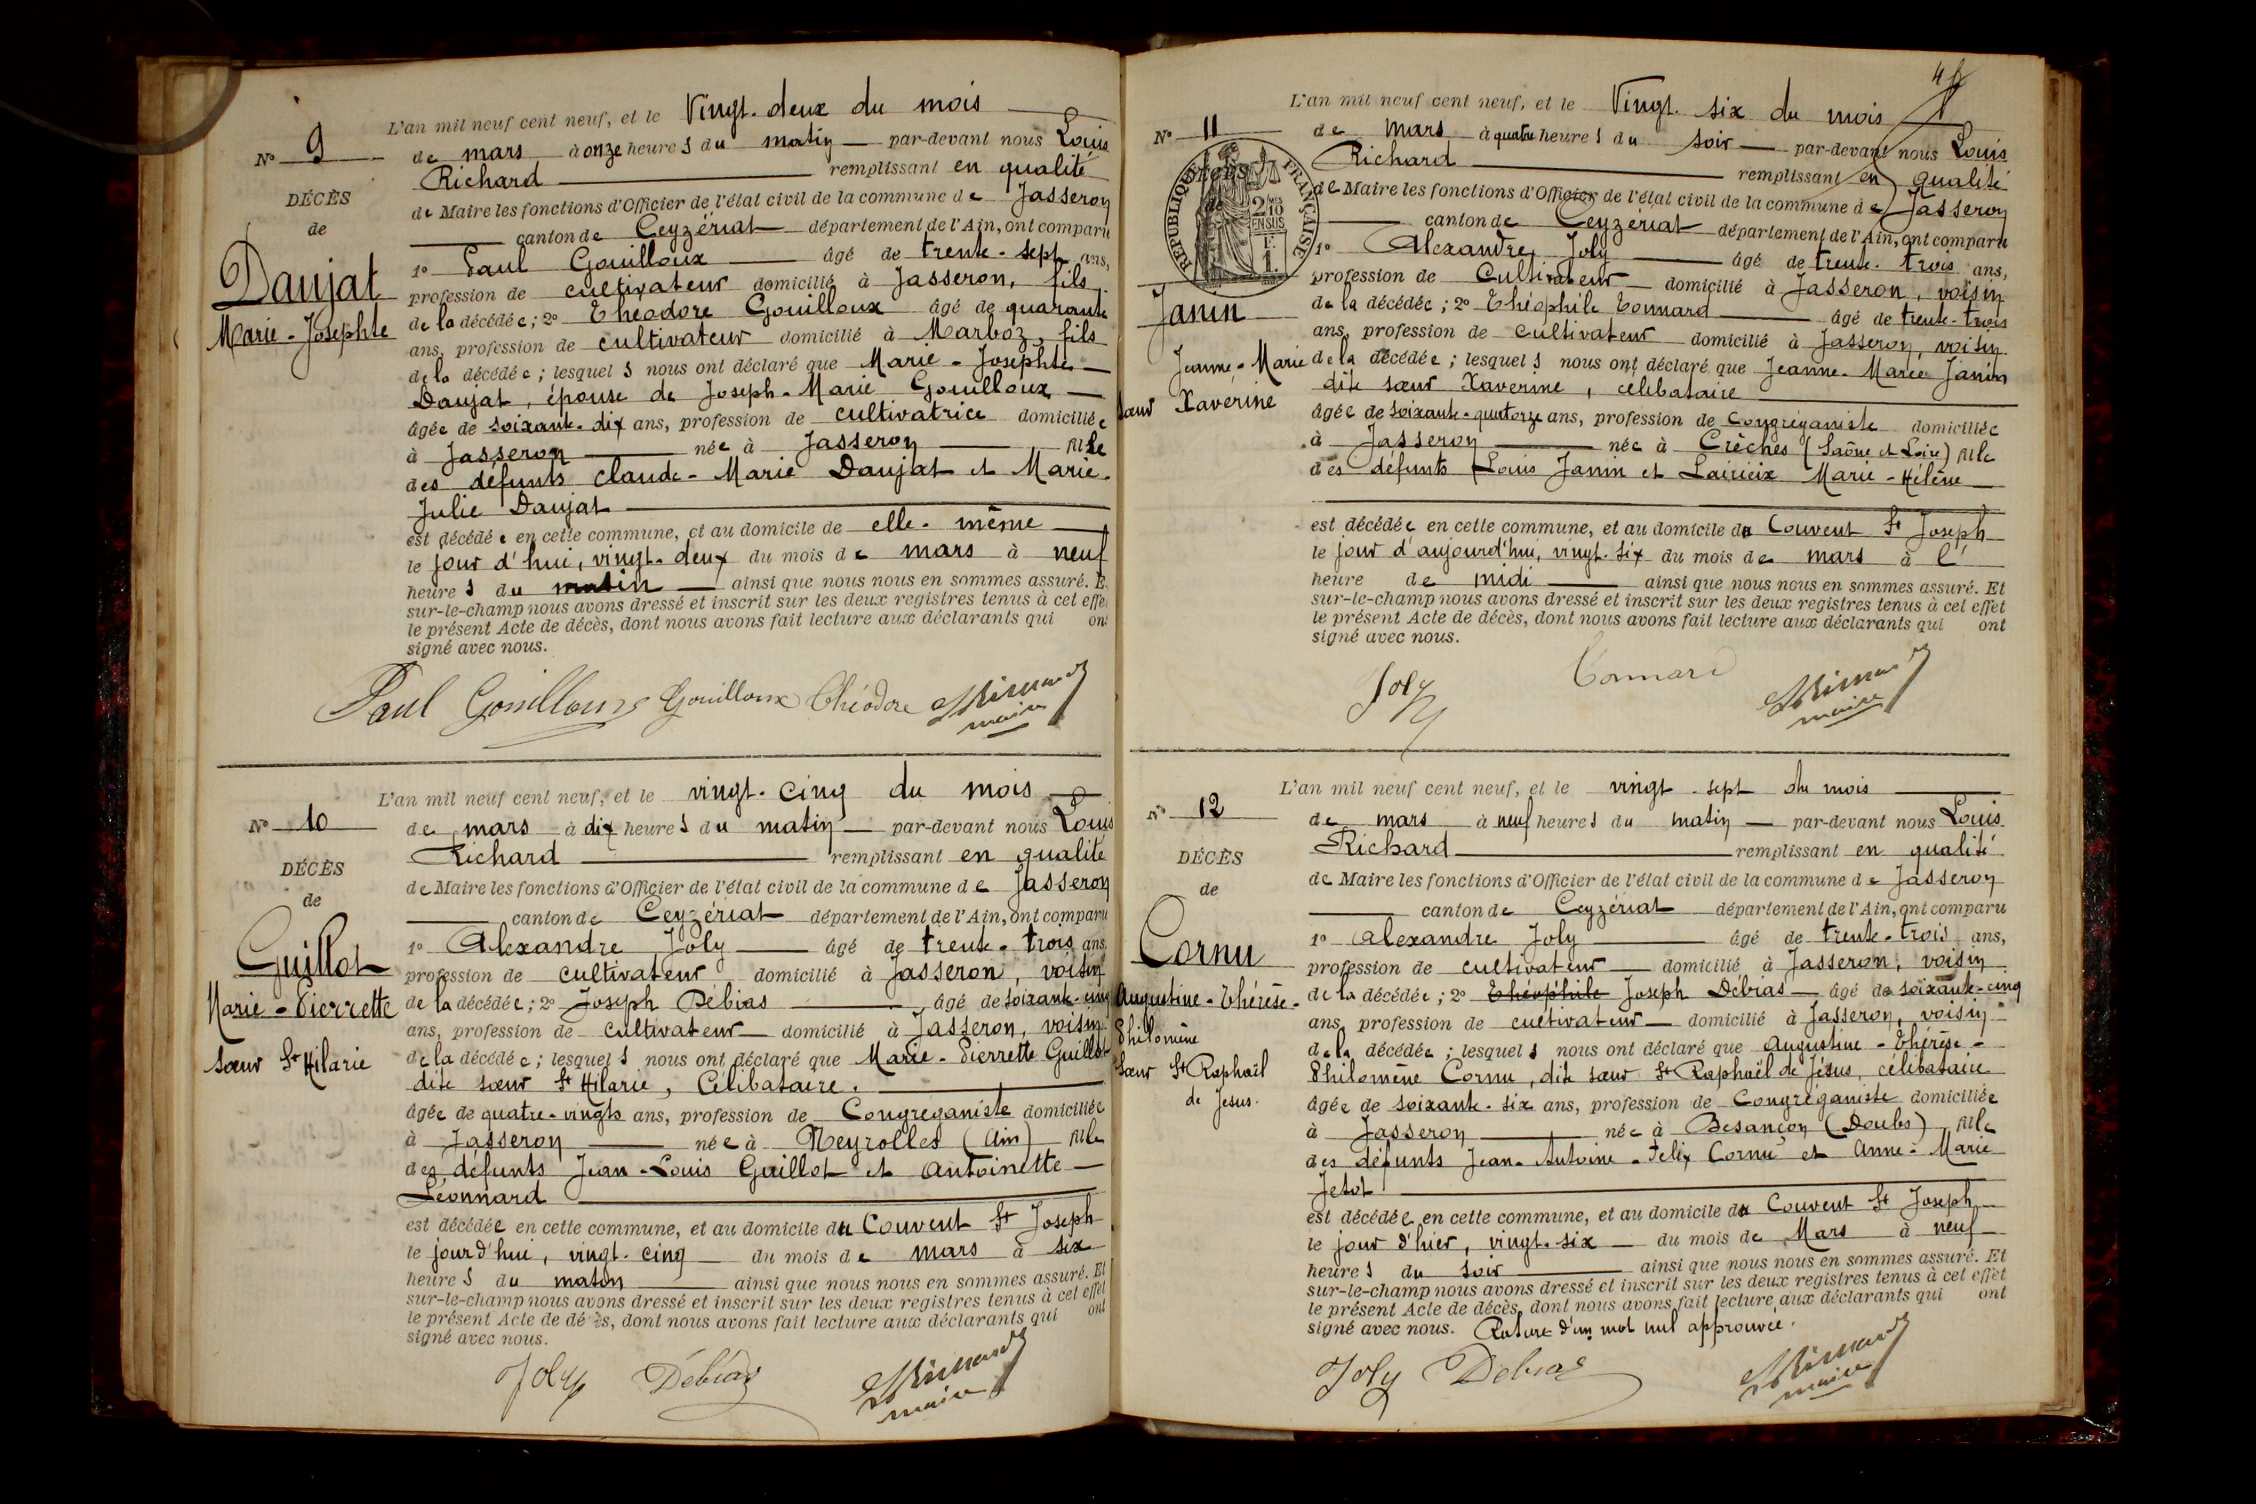 N° 9
DÉCÈS
de
Daujat
Marie-Josephte
L'an mil neuf cent neuf, et le Vingt-deux du mois
de mars à onze heures du matin par-devant nous Louis
Richard remplissant en qualité
de Maire les fonctions d'Officier de l'état civil de la commune de Jasseron
canton de Ceyzériat département de l'Ain, ont comparu
1° Paul Gouilloux âgé de trente-sept ans,
profession de cultivateur domicilié à Jasseron, fils
de la décédée; 2° Théodore Gouilloux âgé de quarante
ans, profession de cultivateur domicilié à Marboz, fils
de la décédée; lesquels nous ont déclaré que Marie-Josephte
Daujat, épouse de Joseph-Marie Gouilloux
âgée de soixante-dix ans, profession de cultivatrice domiciliée
à Jasseron née à Jasseron fille
des défunts Claude-Marie Daujat et Marie-
Julie Daujat
est décédée en cette commune, et au domicile de elle-même
le jour d'hui, vingt-deux du mois de mars à neuf
heures du matin ainsi que nous nous en sommes assuré. E
sur-le-champ nous avons dressé et inscrit sur les deux registres tenus à cet effe
le présent Acte de décès, dont nous avons fait lecture aux déclarants qui ont
signé avec nous.
Paul Gouilloux Gouilloux Théodore LRichard
maire
N° 10
DÉCÈS
de
Guillot
Marie-Pierrette
sœur St Hilarie
L'an mil neuf cent neuf, et le vingt-cinq du mois
de mars à dix heures du matin par-devant nous Louis
Richard remplissant en qualité
de Maire les fonctions d'Officier de l'état civil de la commune de Jasseron
canton de Ceyzériat département de l'Ain, ont comparu
1° Alexandre Joly âgé de trente-trois ans,
profession de cultivateur domicilié à Jasseron, voisin
de la décédée; 2° Joseph Débias âgé de soixante-cinq
ans, profession de cultivateur domicilié à Jasseron, voisin
de la décédée; lesquels nous ont déclaré que Marie-Pierrette Guillot
dite sœur St Hilarie, Célibataire.
âgée de quatre-vingts ans, profession de Congréganiste domiciliée
à Jasseron née à Neyrolles (Ain) fille
des défunts Jean-Louis Guillot et Antoinette
Léonnard
est décédée en cette commune, et au domicile du Couvent St Joseph
le jour d'hui, vingt-cinq du mois de mars à six
heures du matin ainsi que nous nous en sommes assuré. Et
sur-le-champ nous avons dressé et inscrit sur les deux registres tenus à cet effet
le présent Acte de décès, dont nous avons fait lecture aux déclarants qui ont
signé avec nous.
Joly Débias LRichard
maire
N° 11
RÉPUBLIQUE FRANÇAISE
2/10 EN SUS
1F
Janin
Jeanne-Marie
sœur Xaverine
L'an mil neuf cent neuf, et le Vingt-six du mois
de mars à quatre heures du soir par-devant nous Louis
Richard remplissant en qualité
de Maire les fonctions d'Officier de l'état civil de la commune de Jasseron
canton de Ceyzériat département de l'Ain, ont comparu
1° Alexandre Joly âgé de trente-trois ans,
profession de Cultivateur domicilié à Jasseron, voisin
de la décédée; 2° Théophile Connard âgé de trente-trois
ans, profession de cultivateur domicilié à Jasseron, voisin
de la décédée; lesquels nous ont déclaré que Jeanne-Marie Janin
dite sœur Xaverine, célibataire
âgée de soixante-quatorze ans, profession de Congréganiste domiciliée
à Jasseron née à Crêches (Saône et Loire) fille
des défunts Louis Janin et Marie-Hélène
est décédée en cette commune, et au domicile du Couvent St Joseph
le jour d'aujourd'hui, vingt-six du mois de mars à l'
heure de midi ainsi que nous nous en sommes assuré. Et
sur-le-champ nous avons dressé et inscrit sur les deux registres tenus à cet effet
le présent Acte de décès, dont nous avons fait lecture aux déclarants qui ont
signé avec nous.
Joly Connard LRichard
maire
N° 12
DÉCÈS
de
Cornu
Augustine-Thérèse-
Philomène
sœur St Raphaël
de Jésus.
L'an mil neuf cent neuf, et le vingt-sept du mois
de mars à neuf heures du matin par-devant nous Louis
Richard remplissant en qualité
de Maire les fonctions d'Officier de l'état civil de la commune de Jasseron
canton de Ceyzériat département de l'Ain, ont comparu
1° Alexandre Joly âgé de trente-trois ans,
profession de cultivateur domicilié à Jasseron, voisin
de la décédée; 2° Théophile Joseph Débias âgé de soixante-cinq
ans, profession de cultivateur domicilié à Jasseron, voisin
de la décédée; lesquels nous ont déclaré que Augustine-Thérèse-
Philomène Cornu, dite sœur St Raphaël de Jésus, célibataire
âgée de soixante-six ans, profession de Congréganiste domiciliée
à Jasseron née à Besançon (Doubs) fille
des défunts Jean-Antoine-Felix Cornu et Anne-Marie
Jetot
est décédée en cette commune, et au domicile du Couvent St Joseph
le jour d'hier, vingt-six du mois de Mars à neuf
heures du soir ainsi que nous nous en sommes assuré. Et
sur-le-champ nous avons dressé et inscrit sur les deux registres tenus à cet effet
le présent Acte de décès, dont nous avons fait lecture aux déclarants qui ont
signé avec nous. Rature d'un mot nul approuvée.
Joly Débias LRichard
maire